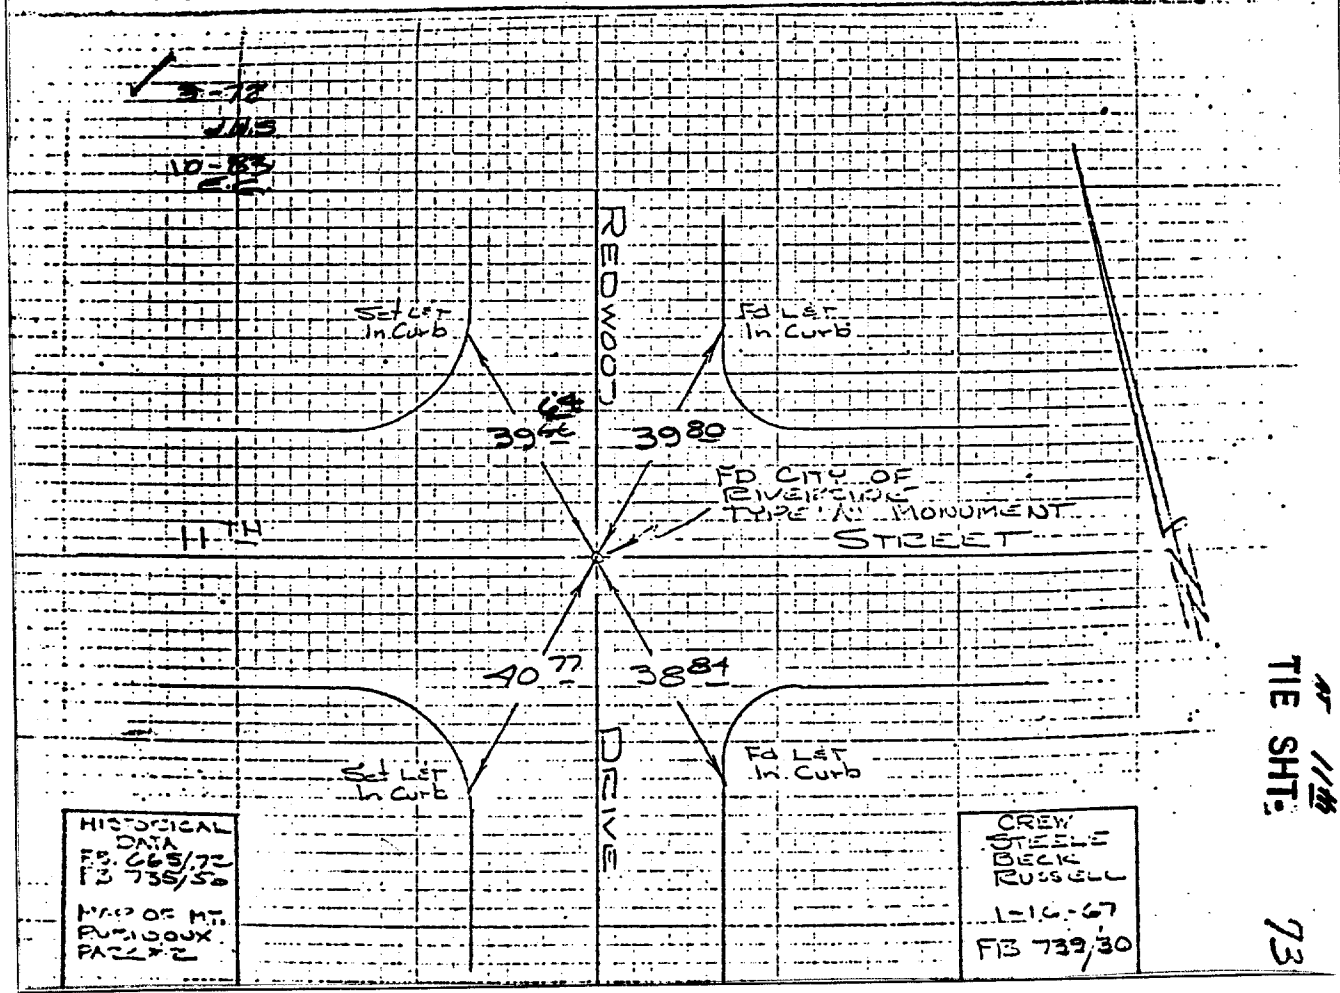 3-72
10-83
REDWOOD
Set L&T
In Curb
Fd L&T
In Curb
64
39
39 80
FD CITY OF
RIVERSIDE
TYPE 'A' MONUMENT
11TH
STREET
40 77
38 84
DRIVE
Set L&T
In Curb
Fd L&T
In Curb
HISTORICAL
DATA
FB. 665/72
FB 735/50
MAP OF MT.
RUBIDOUX
CREW
STEELE
BECK
RUSSELL
1-16-67
FB 739/30
11th
TIE SHT:
73